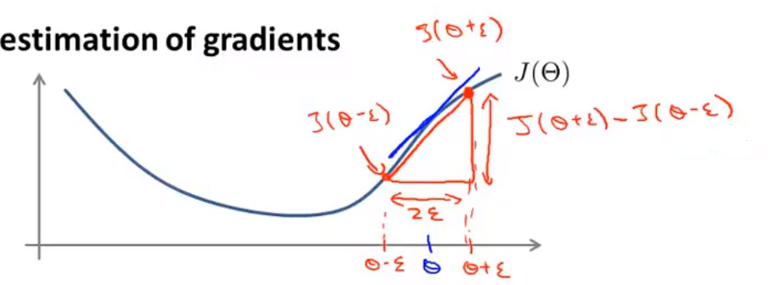 estimation of gradients
J(θ+ε)
J(Θ)
J(θ-ε)
J(θ+ε)-J(θ-ε)
2ε
θ-ε θ θ+ε